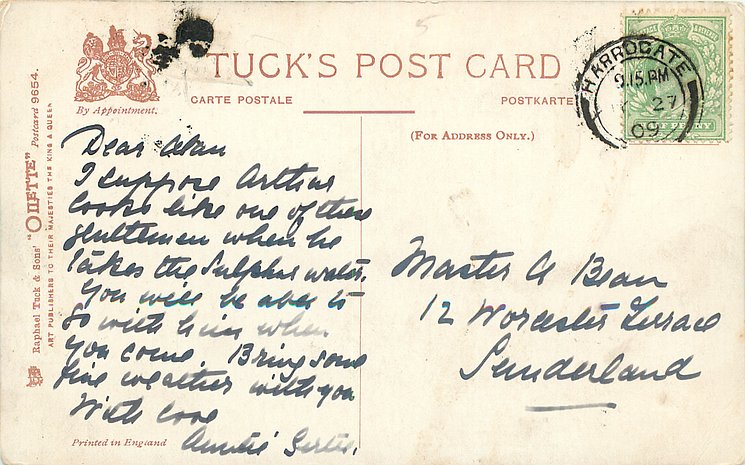 TUCK'S POST CARD
CARTE POSTALE
POSTKARTE
By Appointment.
(FOR ADDRESS ONLY.)
HARROGATE
9.15.PM
27
09
Raphael Tuck & Sons' "OILETTE" Postcard 9654.
ART PUBLISHERS TO THEIR MAJESTIES THE KING & QUEEN
Dear Alan
I suppose Arthur
looks like one of these
gentlemen when he
takes the Sulphur water.
You will be able to
go with him when
you come. Bring some
fine weather with you
With love
Auntie
Master A Bean
12 Worcester Terrace
Sunderland
Printed in England